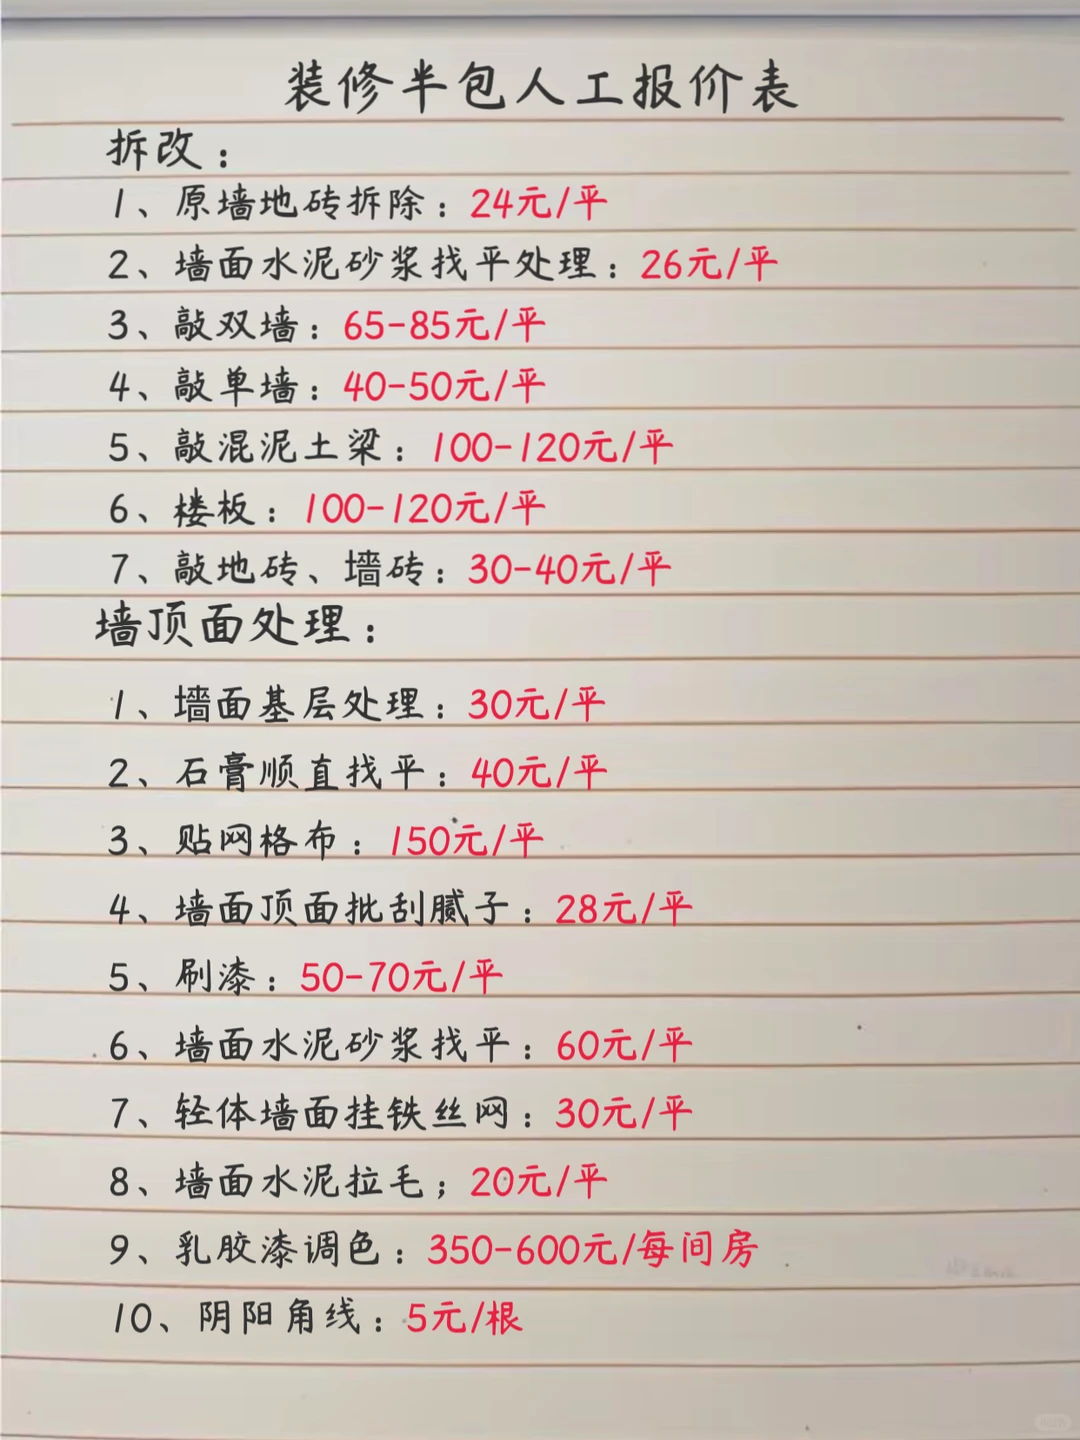 装修半包人工报价表
拆改：
1、原墙地砖拆除：24元/平
2、墙面水泥砂浆找平处理：26元/平
3、敲双墙：65-85元/平
4、敲单墙：40-50元/平
5、敲混泥土梁：100-120元/平
6、楼板：100-120元/平
7、敲地砖、墙砖：30-40元/平
墙顶面处理：
1、墙面基层处理：30元/平
2、石膏顺直找平：40元/平
3、贴网格布：150元/平
4、墙面顶面批刮腻子：28元/平
5、刷漆：50-70元/平
6、墙面水泥砂浆找平：60元/平
7、轻体墙面挂铁丝网：30元/平
8、墙面水泥拉毛；20元/平
9、乳胶漆调色：350-600元/每间房
10、阴阳角线：5元/根